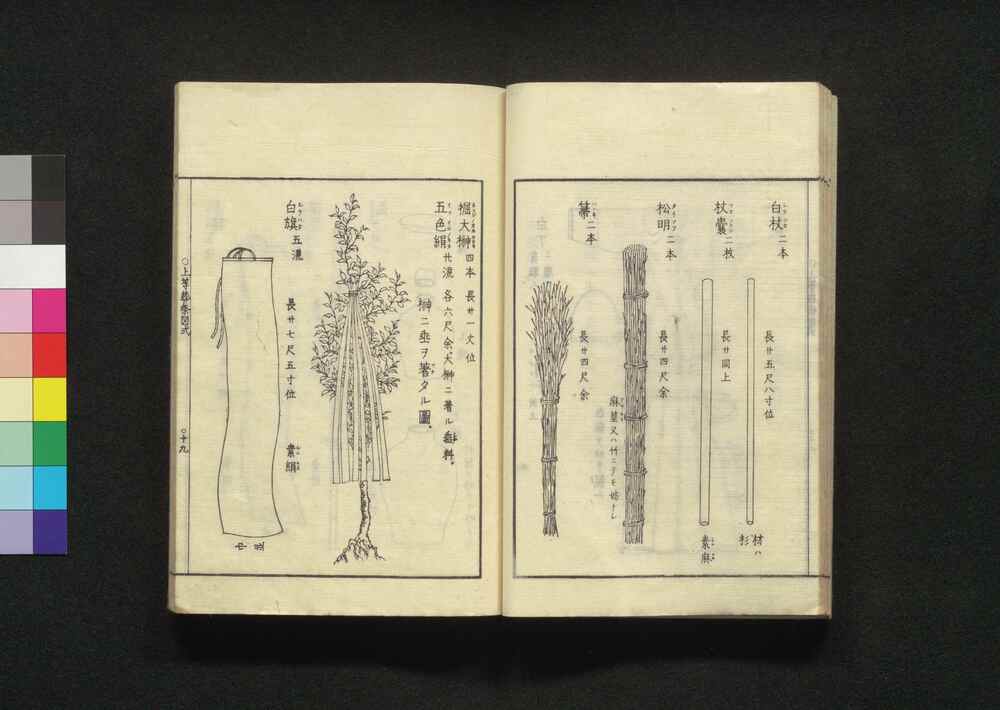 白杖二本
長サ五尺八寸位
材ハ
杉
杖嚢二枚
長サ同上
素麻
松明二本
長サ四尺余
麻茎又ハ竹ニテモ
箒二本
長サ四尺余
掘大榊四本 長サ一丈位
五色絹廿流 各六尺余大榊ニ着ル垂料
榊ニ垂ヲ著タル圖
白旗五流
長サ七尺五寸位
素絹
巾
○上等葬祭図式
○十九